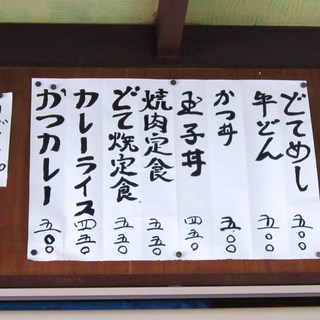 どてめし 五〇〇
牛どん 五〇〇
かつ丼 五〇〇
玉子丼 四五〇
焼肉定食 五五〇
どて焼定食 五五〇
カレーライス 四五〇
かつカレー 五〇〇